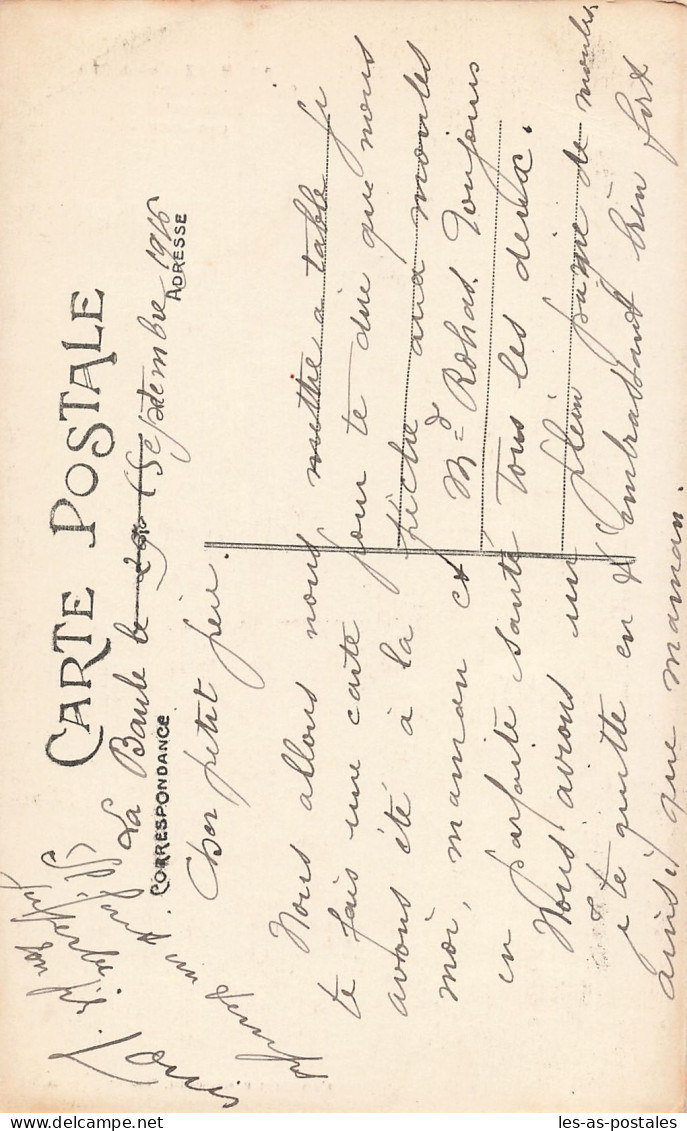 CARTE POSTALE
CORRESPONDANCE
ADRESSE
La Baule le Septembre 1916
Cher petit père.
Nous allons nous mettre a table je
te fais une carte pour te dire que nous
avons été à la pêche aux moules
moi, maman et Md Rohas. Toujours
en parfaite santé tous les deux.
Nous avons un plein panier de moules
je te quitte en t'embrassant bien fort
ainsi que maman.
les-as-postales